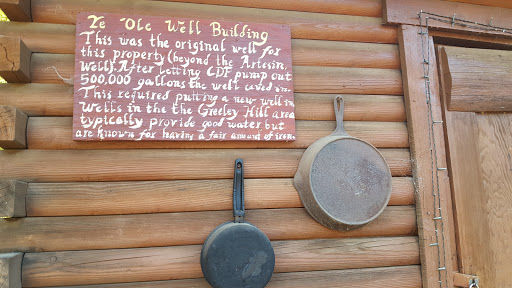 Ye Olc Well Building
This was the original well for
this property (beyond the Artesin
Well). After letting CDF pump out
500,000 gallons the well caved in.
This required putting a new well in.
Wells in the the Greeley Hill area
typically provide good water but
are known for having a fair amount of iron.